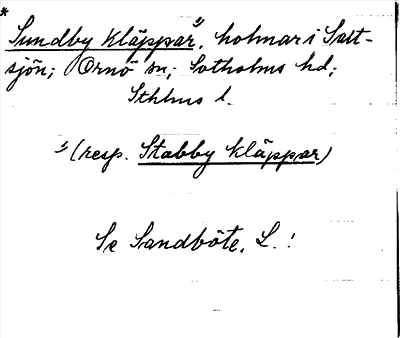 *
Sundby kläppar¹⁾, holmar i Salt-
sjön; Ornö sn; Sotholms hd;
Sthlms l.
¹⁾ (resp. Stabby kläppar)
Se Sandböte, L.!